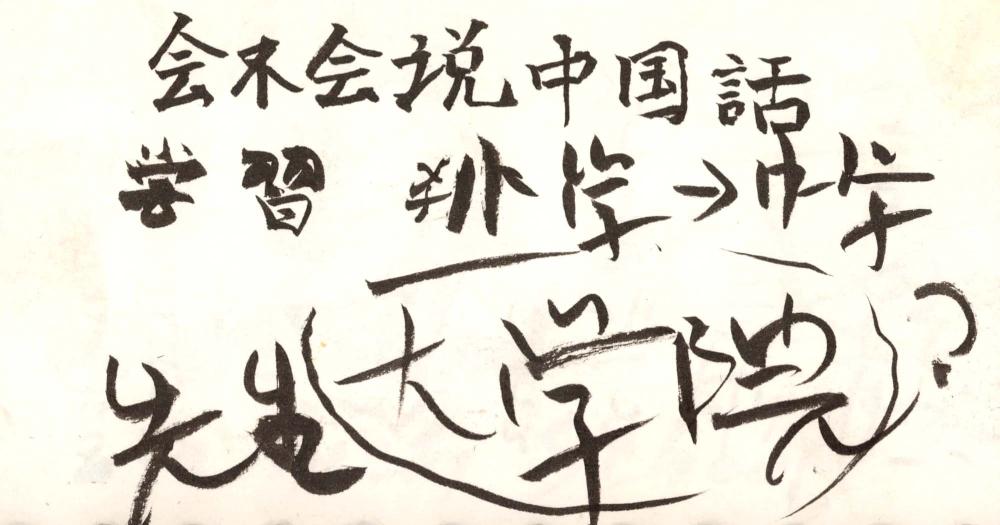 会不会说中国話
学習 学→ 学
先生(大学院)?